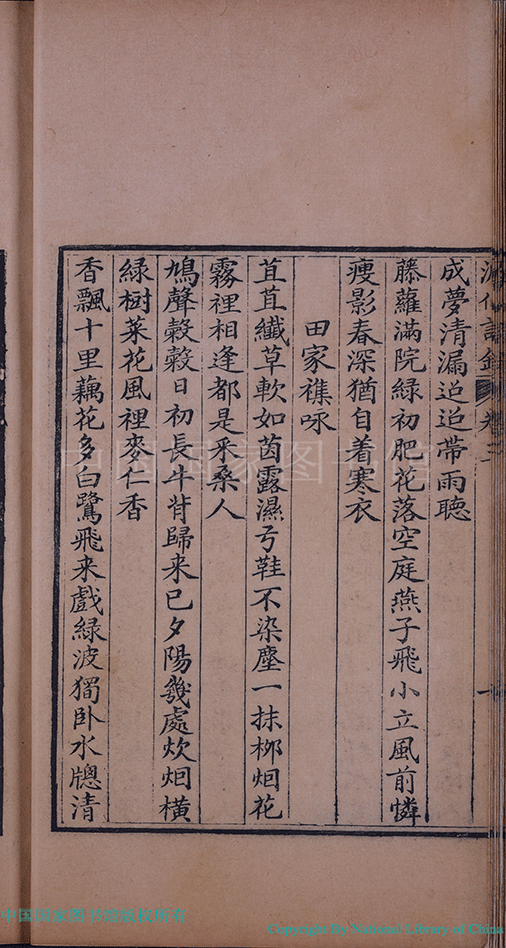 成夢清漏迢迢帶雨聽
藤蘿滿院綠初肥花落空庭燕子飛小立風前憐
瘦影春深猶自着寒衣
田家襍咏
苴苴纖草軟如茵露濕弓鞋不染塵一抹柳烟花
霧裡相逢都是采桑人
鳩聲穀穀日初長牛背歸来已夕陽幾處炊烟橫
緑樹菜花風裡麥仁香
香飄十里藕花多白鷺飛来戲緑波獨卧水牕清
中国国家图书馆
中国国家图书馆版权所有
Copyright By National Library of China